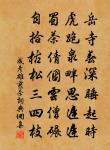 岳寺春深睡起時
虎跑泉畔思遲遲
蜀茶倩個雲僧碾
自拾枯松三四枝
成彥雄煎茶